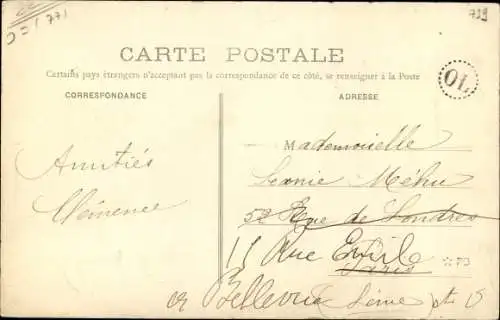 739
CARTE POSTALE
Certains pays étrangers n'acceptant pas la correspondance de ce côté, se renseigner à la Poste
CORRESPONDANCE
ADRESSE
OL
Amitiés
Clémence
Mademoiselle
Leonie Méhu
52 Rue de Londres
11 Rue Emile
Paris
Bellevue Seine et O